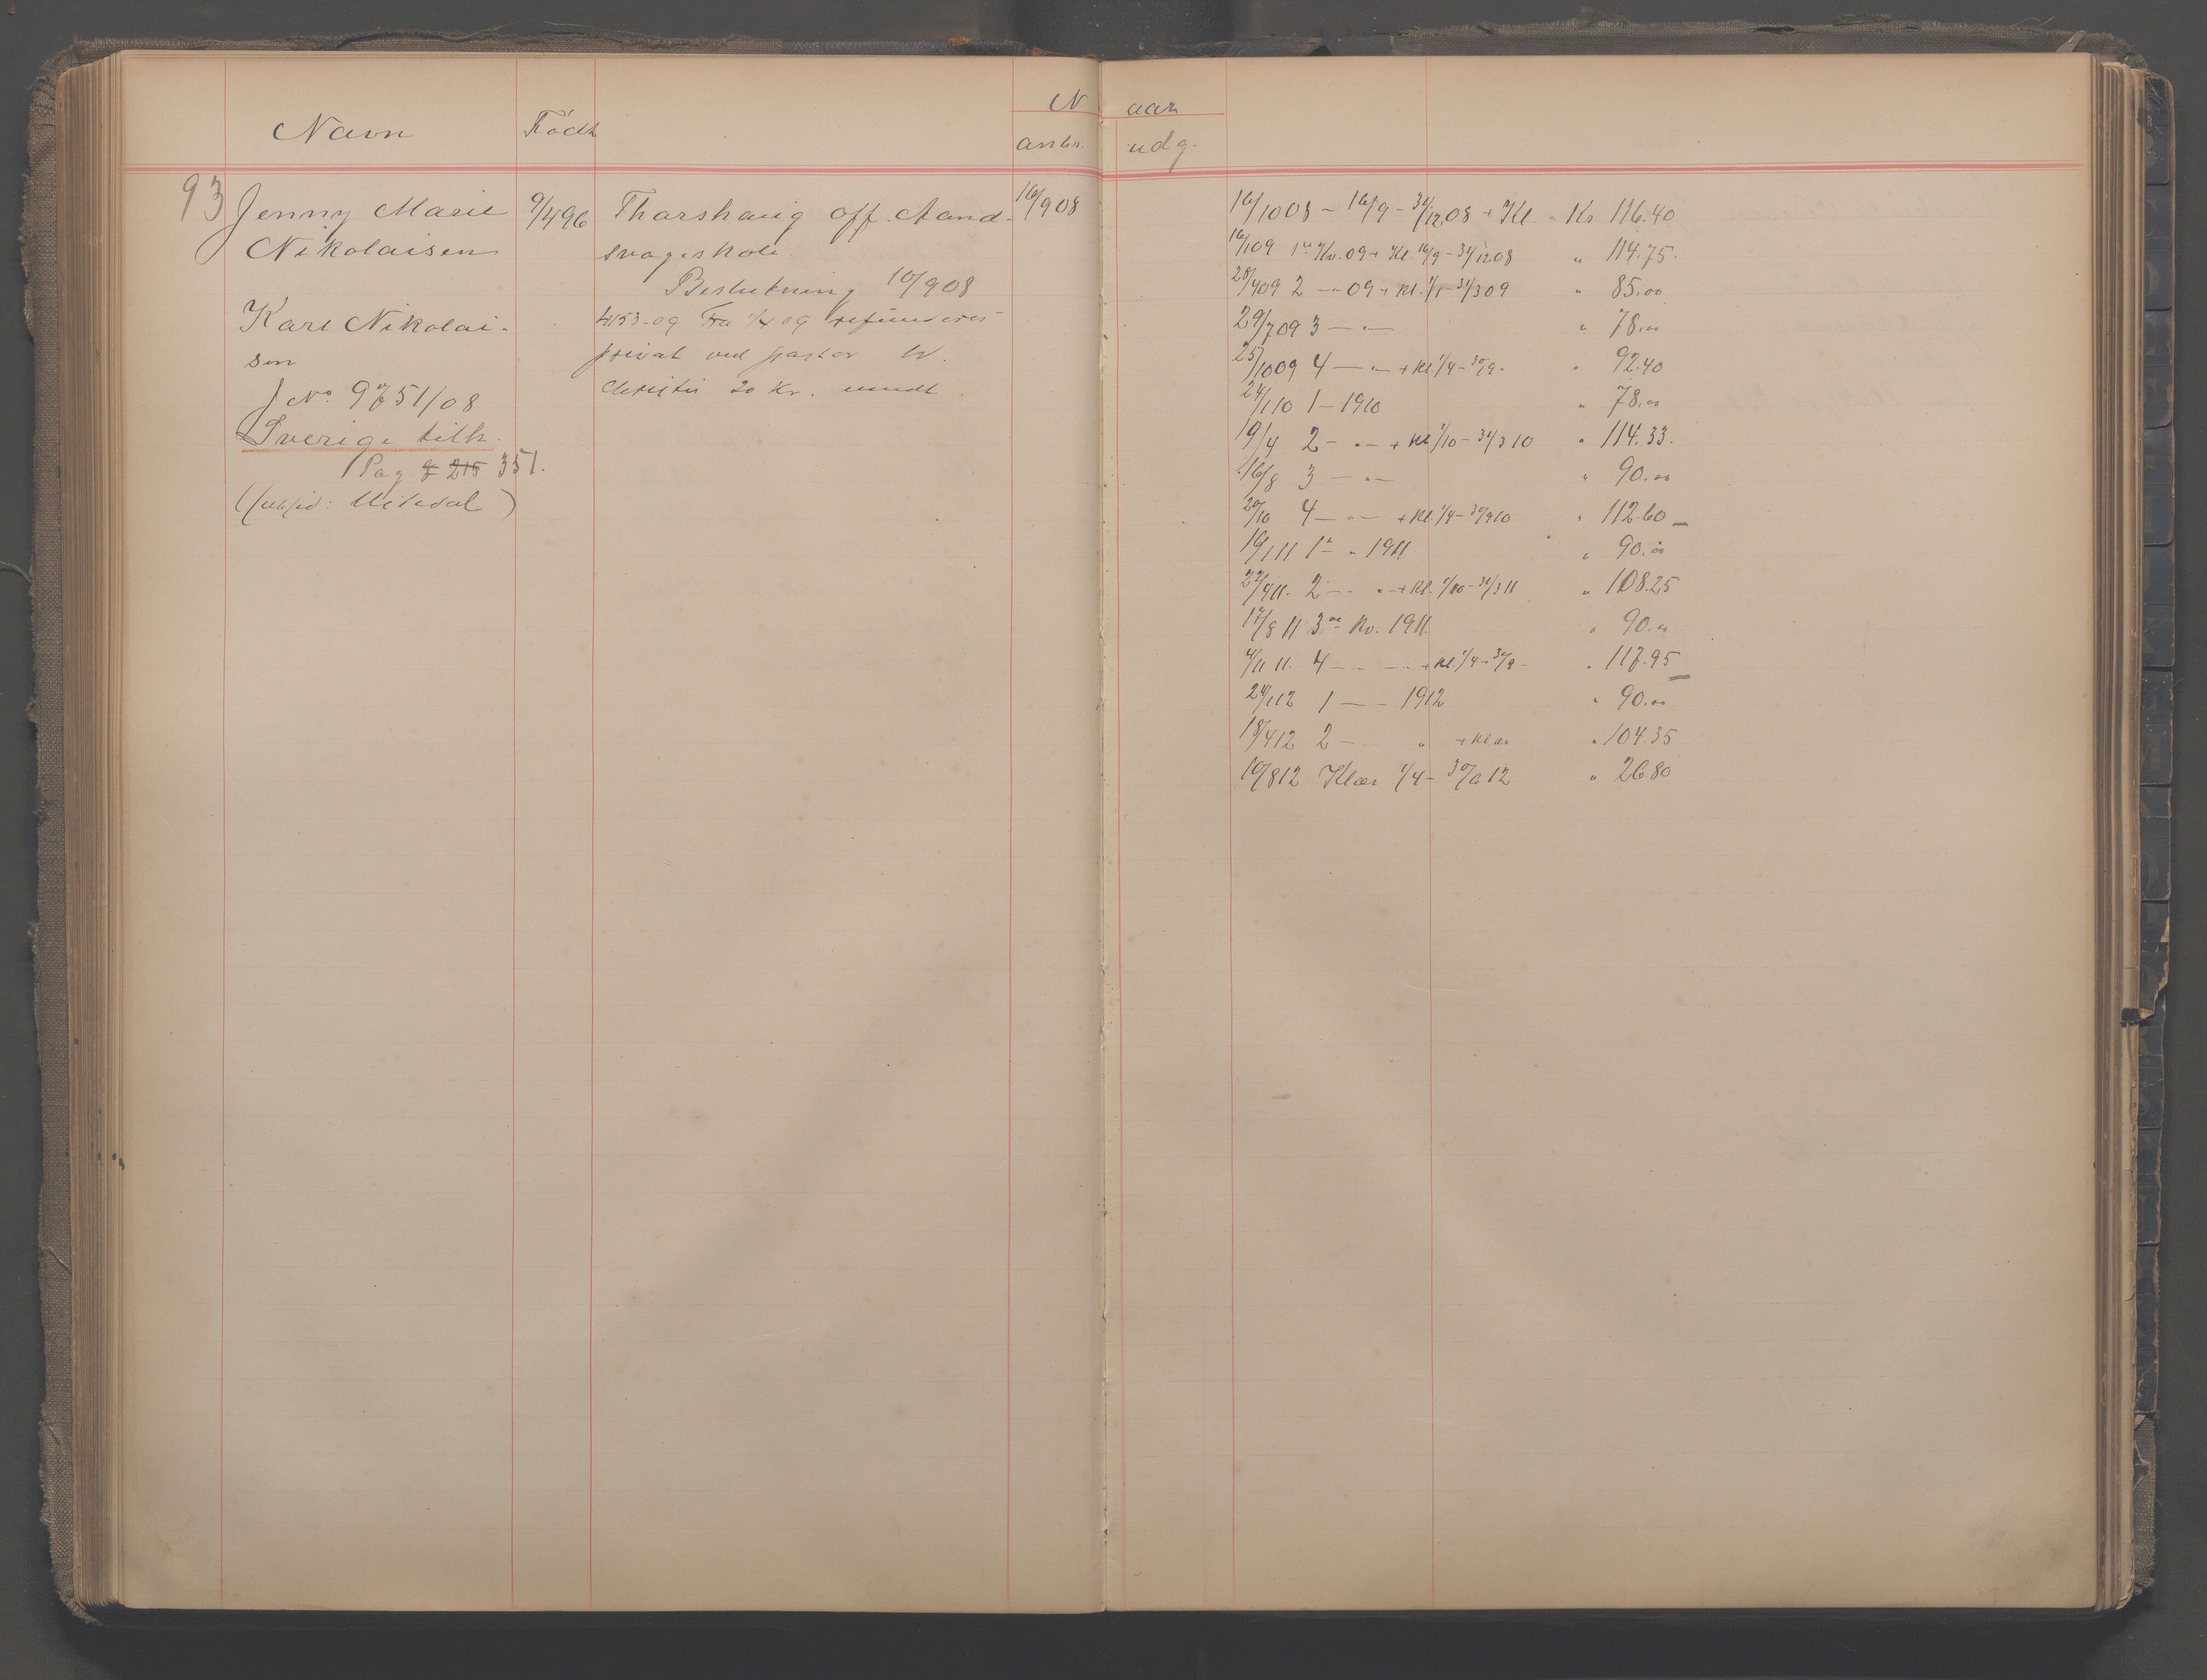 Navn Födt N aar
anbr. udg.
93 Jenny Marie 9/4 96 Tharshaug off. Aand- 16/9 08
Nikolaisen svageskole
Beslutning 10/9 08
Karl Nikolai- 4153-09 Fra 1/4 09 refunderes
sen privat ved pastor W.
J No. 9751/08 Christie 20 Kr. mndt.
Sverige tilh.
Pag 8 215 351.
16/10 08 - 16/9 - 31/12 08 + Kl. - Kr 116.40
16/1 09 1ste Kv. 09 + Kl. 16/9 - 31/12 08 " 114.75.
28/4 09 2 - " 09 + Kl. 1/1 - 31/3 09 " 85.00
29/7 09 3 — " — " 78.00
25/10 09 4 — " — + Kl. 1/4 - 30/9. " 92.40
24/1 10 1 - 1910 " 78.00
19/4 2 - " — + Kl 1/10 - 31/3 10 " 114.33.
16/8 3 — " — " 90.00
20/10 4 — " — + Kl. 1/4 - 30/9 10 " 112.60
19/1 11 1ste " 1911 " 90.00
22/4 11. 2 - - " - + Kl. 1/10 - 31/3 11 " 108.25
17/8 11 3die Kv. 1911. " 90.00
4/11 11. 4 - - - + Kl. 1/4 - 30/9 - " 117.95
24/1 12 1 — - 1912 " 90.00
18/4 12 2 - " + Klær " 104.35
10/8 12 Klær 1/4 - 30/6 12 " 26.80